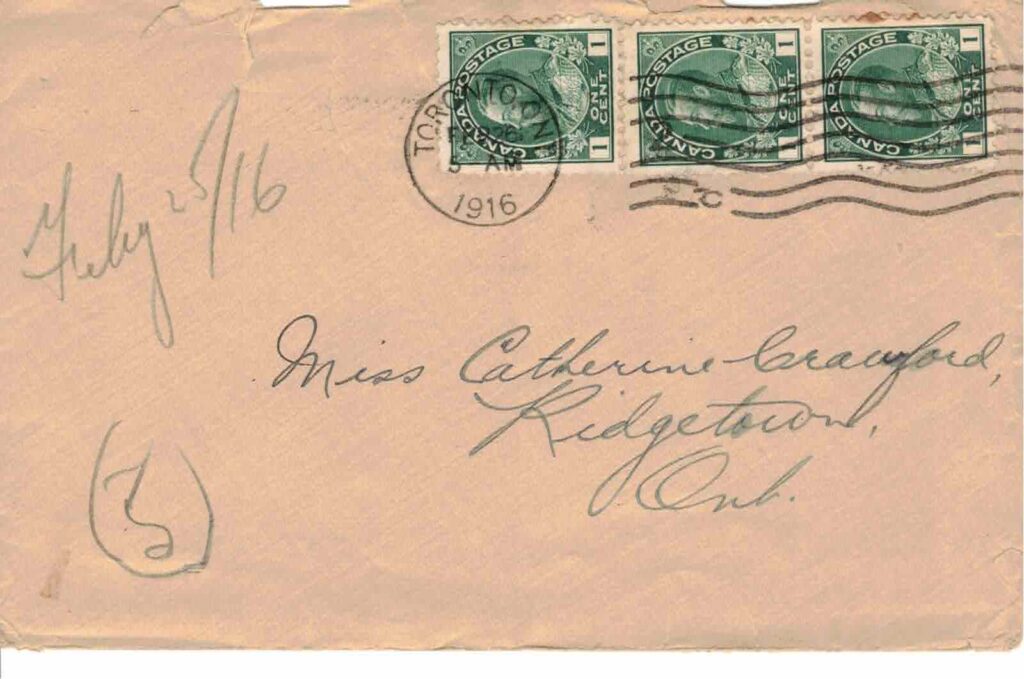 CANADA POSTAGE
1 ONE CENT 1
CANADA
CANADA POSTAGE
1 ONE CENT 1
CANADA
CANADA POSTAGE
1 ONE CENT 1
CANADA
TORONTO, ON
AM
1916
Feby 25/16
Miss Catherine Crawford,
Ridgetown,
Ont.
(3)